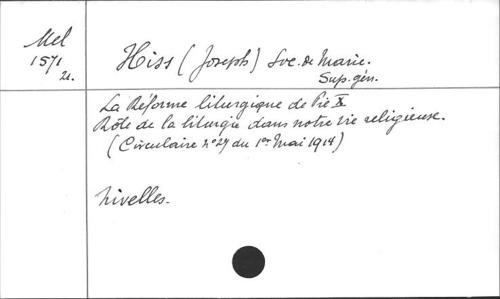 Mel
1571
u.
Hiss (Joseph) Soc. de Marie.
Sup. gén.
La Réforme liturgique de Pie X
Rôle de la liturgie dans notre vie religieuse.
(Circulaire n° 27 du 1er Mai 1914)
Nivelles.